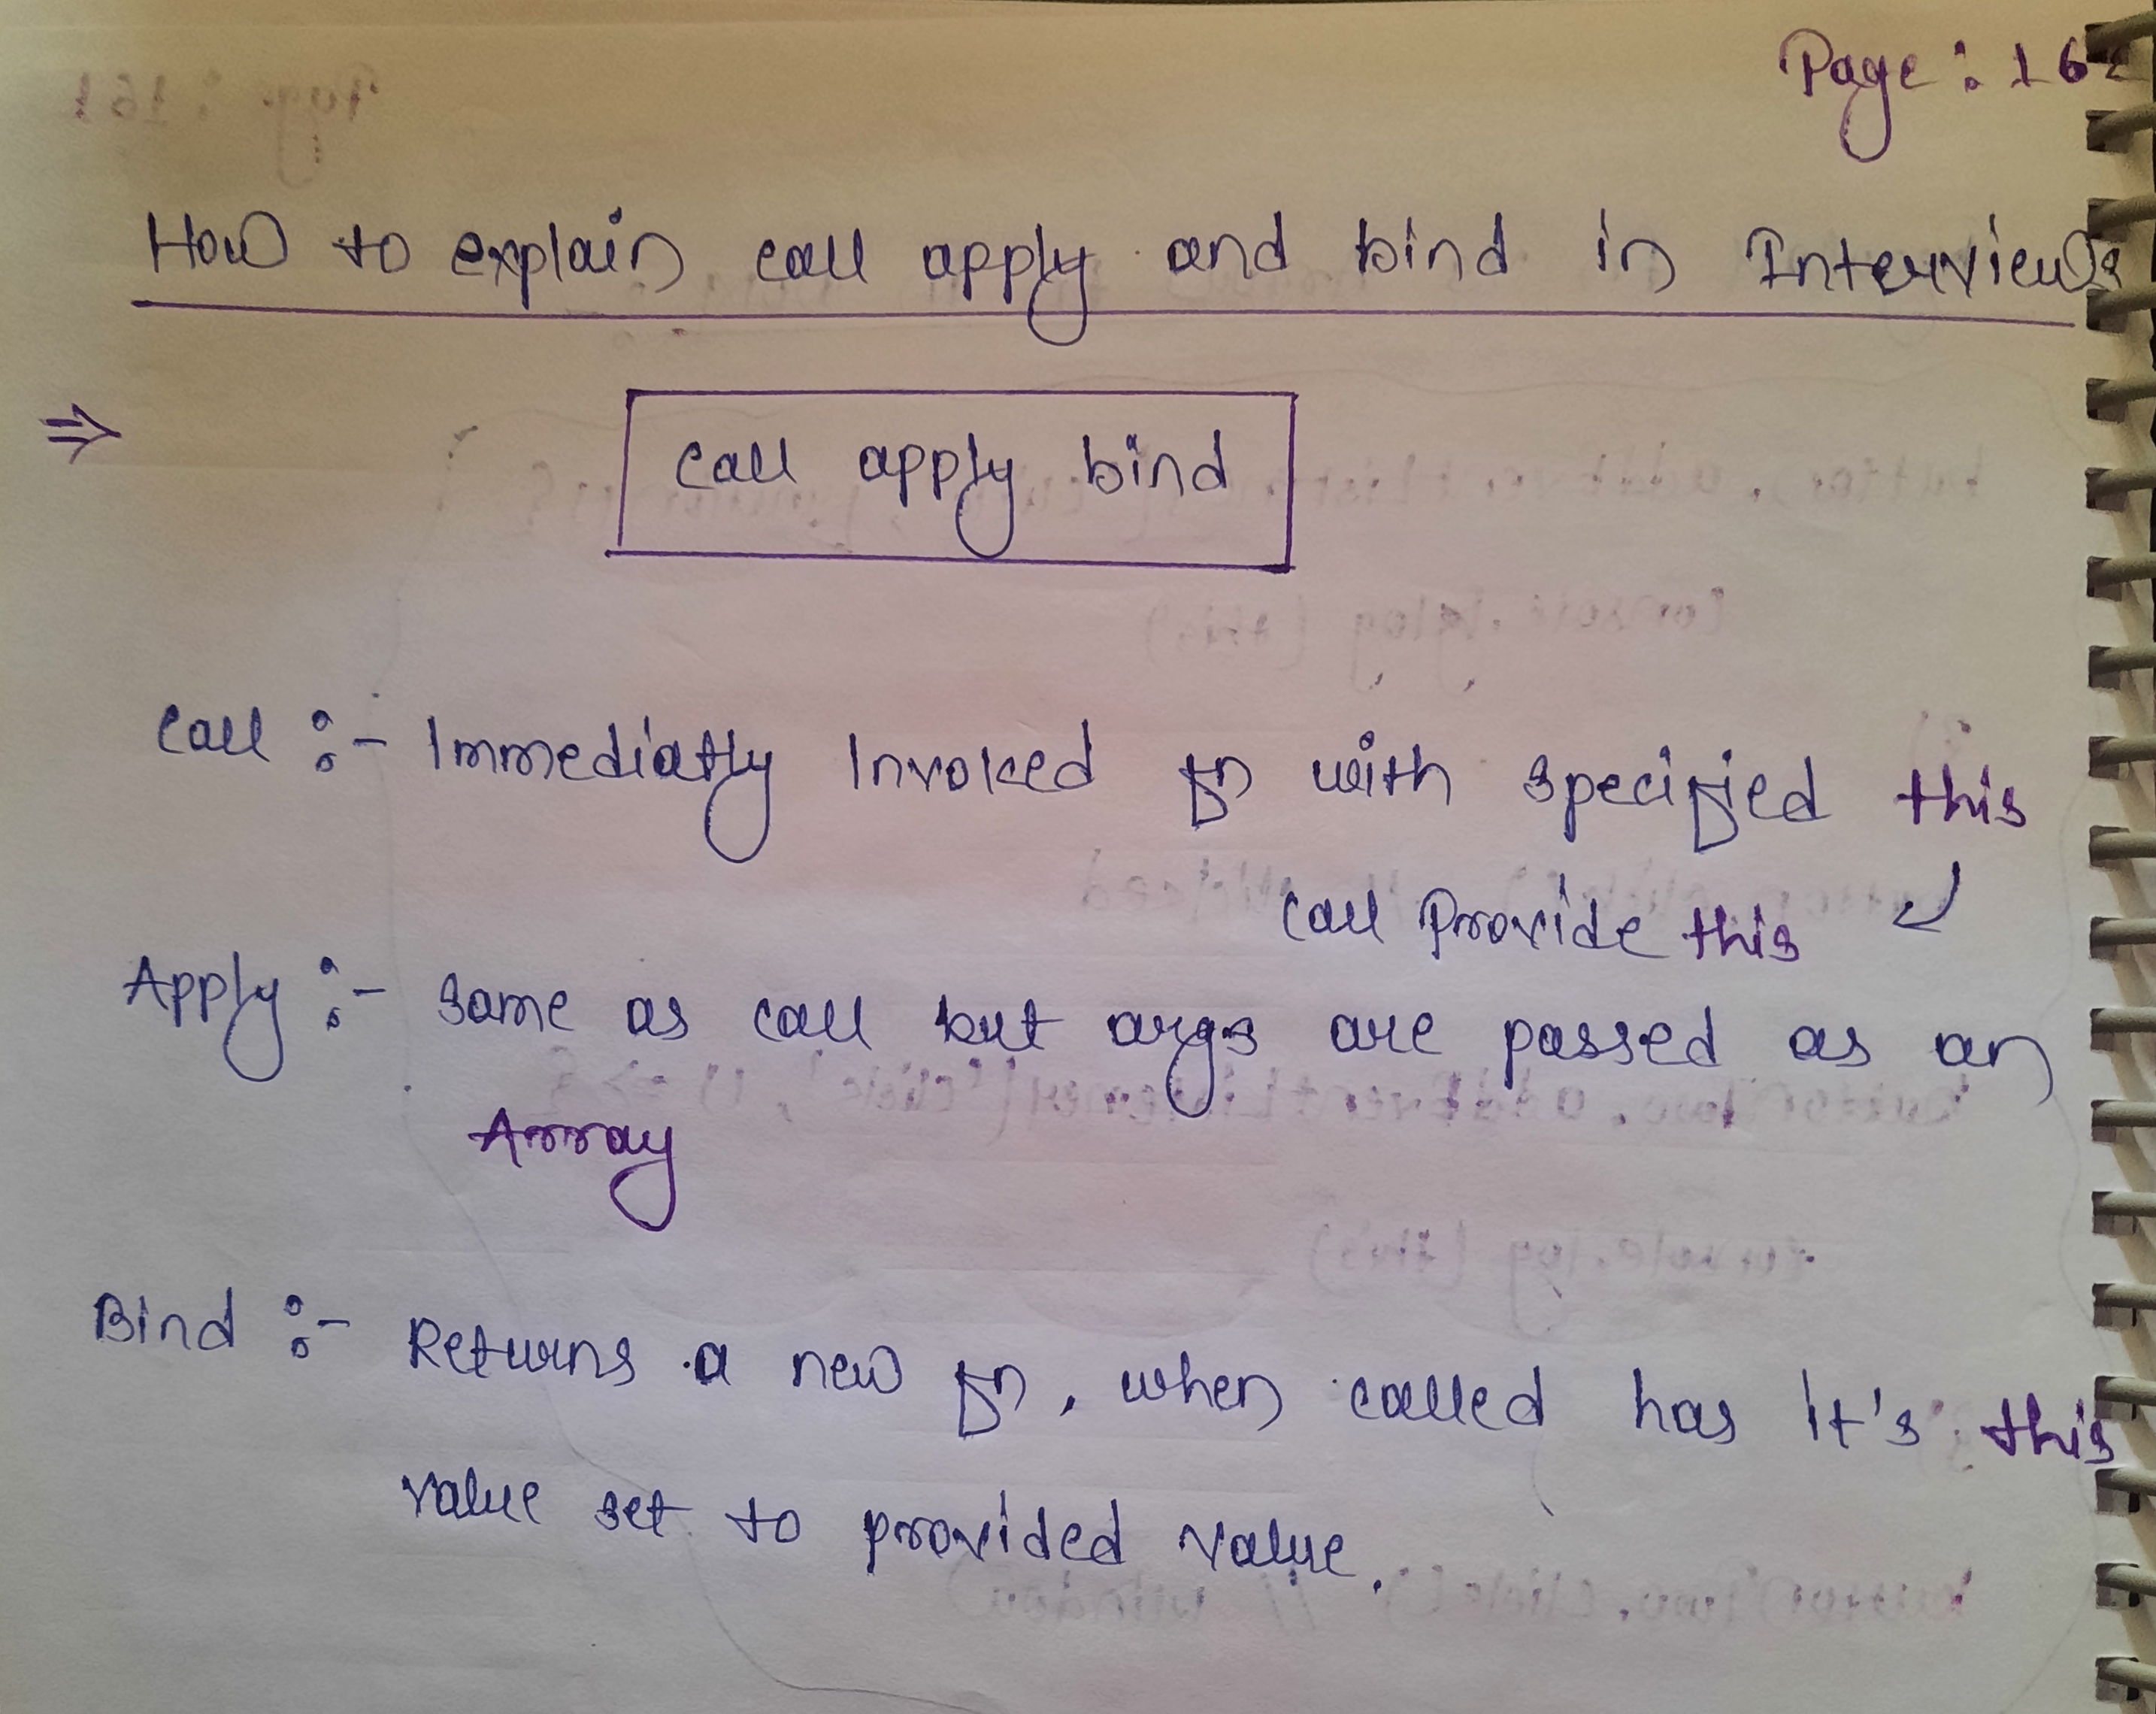 Page : 162
How to explain call apply and bind in Interviews
⇒
call apply bind
Call :- Immediatly Invoked fn with specified this
call Provide this
Apply :- same as call but args are passed as an
Array
Bind :- Returns a new fn, when called has It's this
value set to provided value.